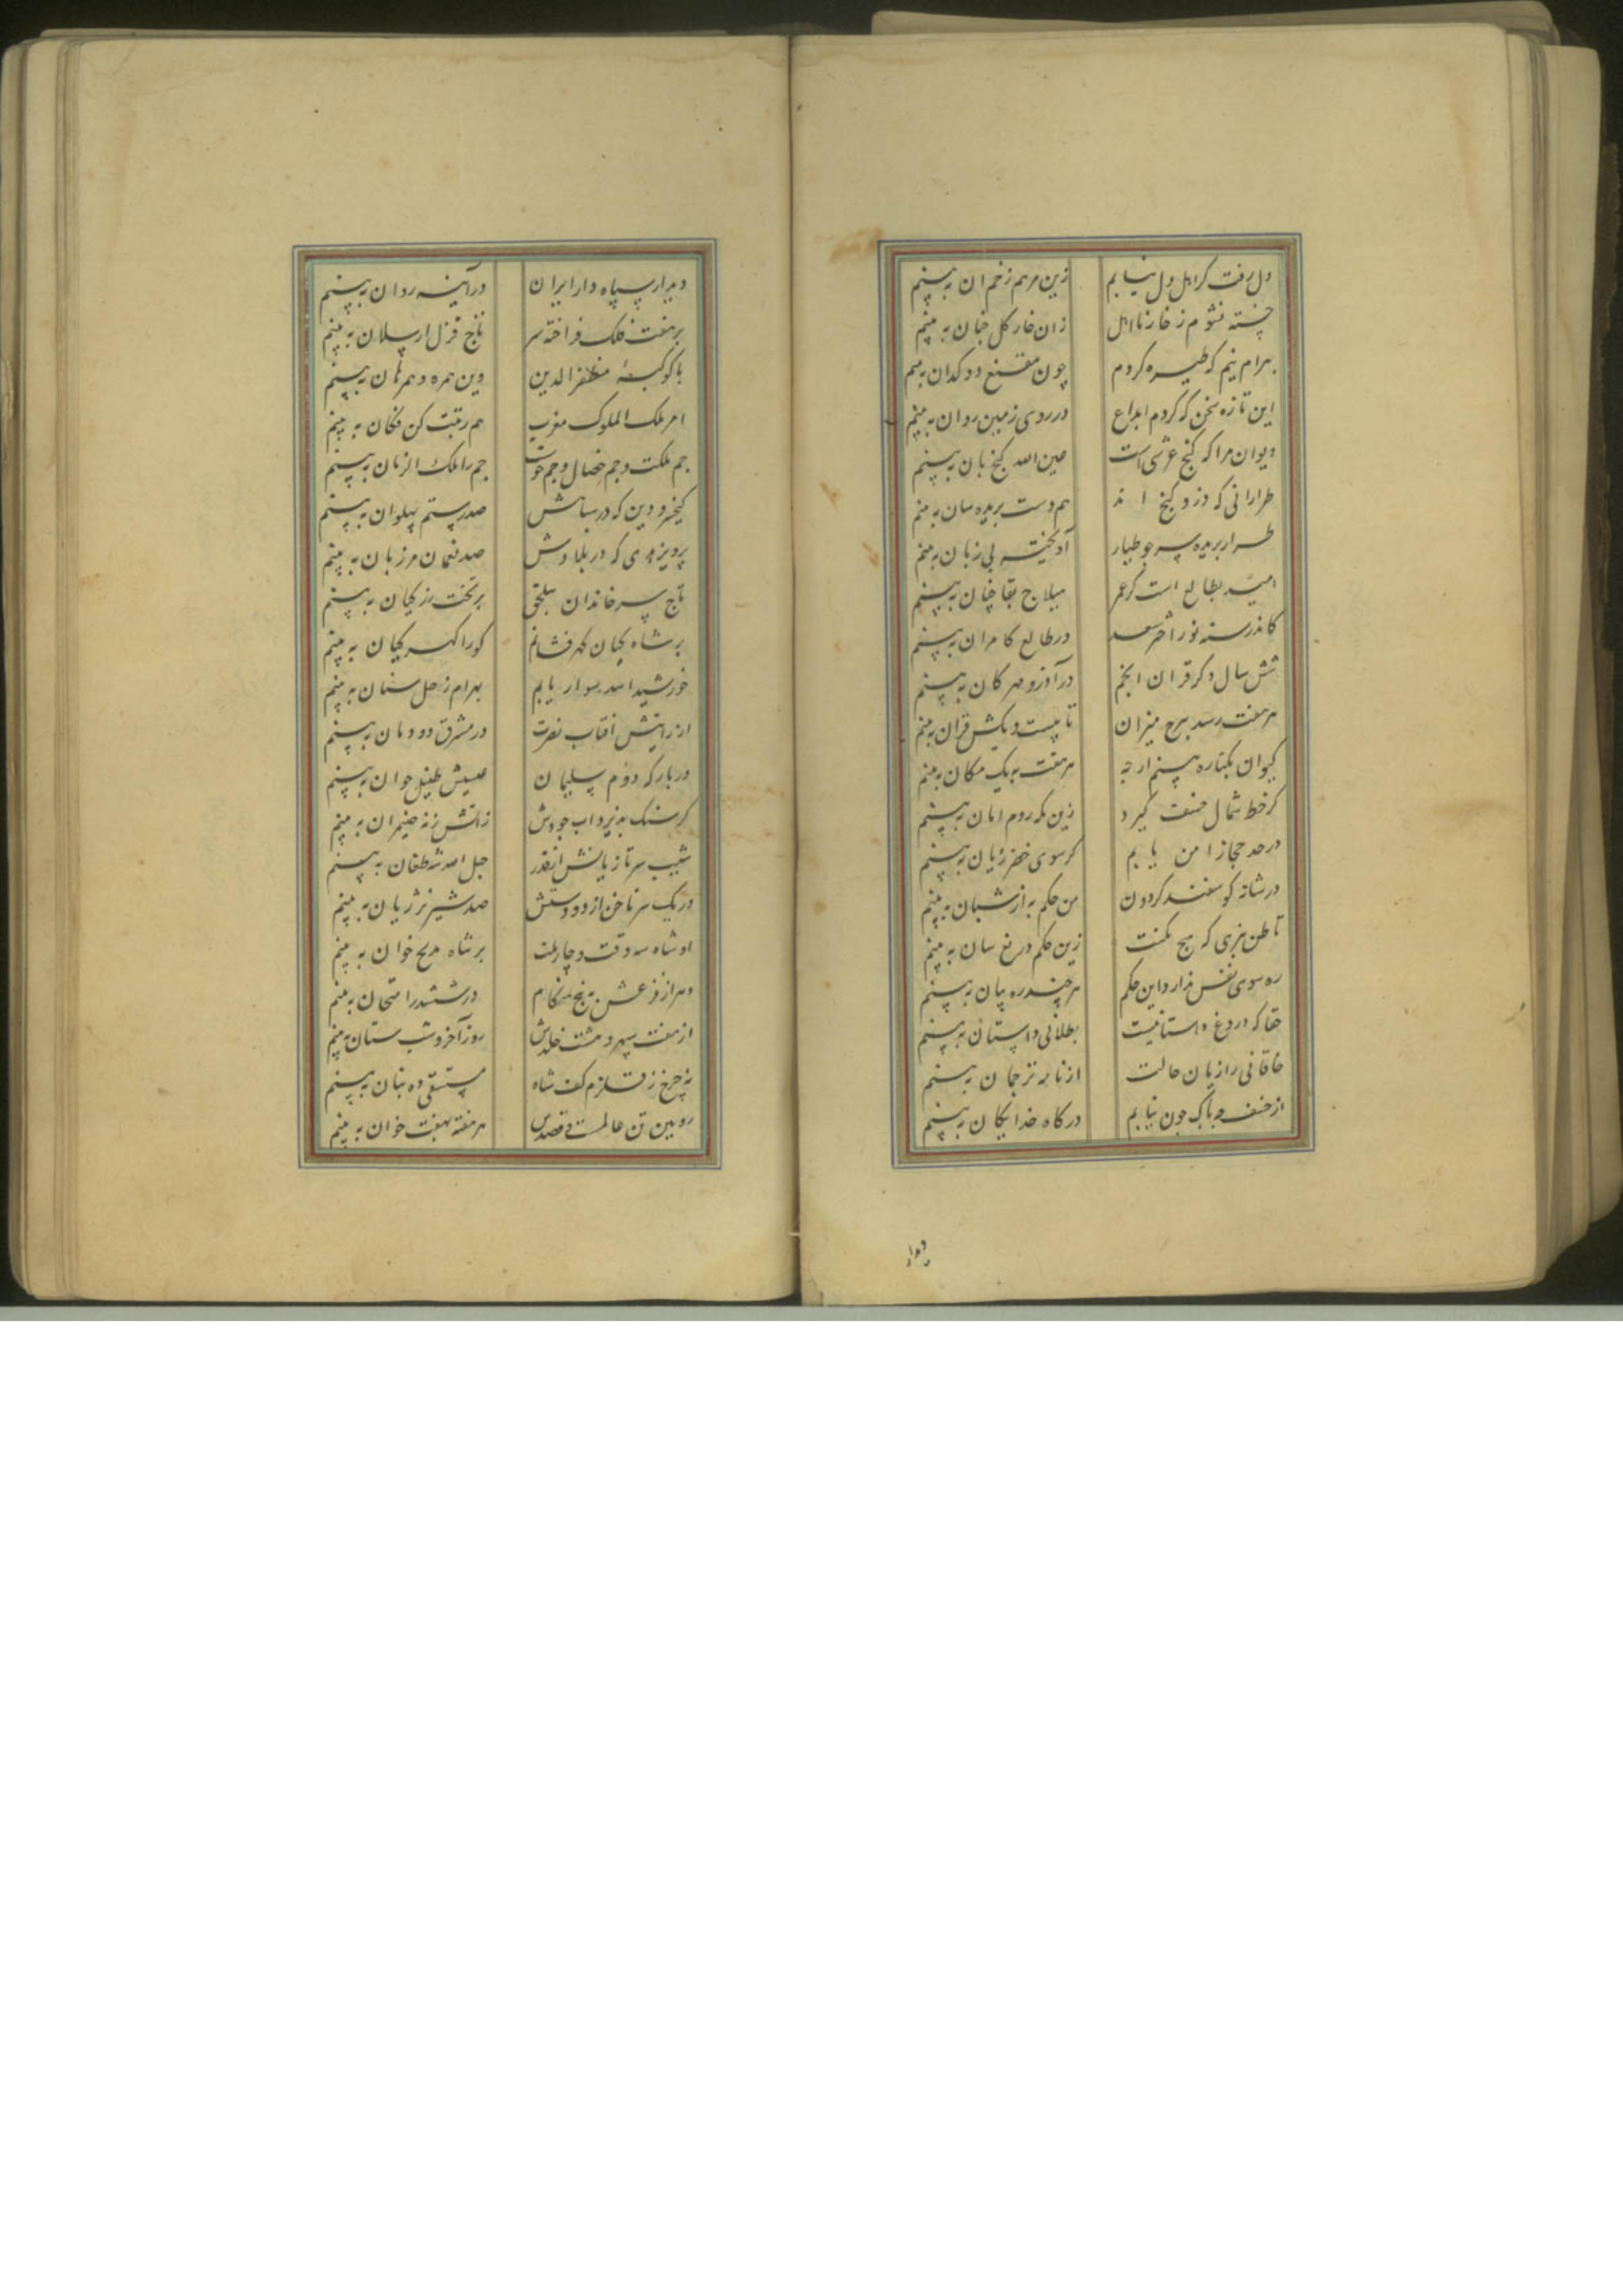 دل رفت کر اهل دل نیابم زین مرهم زخم ان به بینم
خسته نشوم ز خار نااهل زان خار کل جنان به بینم
بهرام نیم که طیره کردم چون مقنع دوکدان به بینم
این تازه سخن که کردم ابداع در روی زمین روان به بینم
دیوان مرا که کنج عرشی است عین الله کنج بان به بینم
طرارانی که دزد کنج اند هم دست بریده سان به بینم
طرار بریده سر جو طیار آویخته بی زبان به بینم
امید بطالع است کز عمر هیلاج بقا جنان به بینم
کاندر سنه نور اختر سعد در طالع کامران به بینم
شش سال دکر قران انجم در آذر و مهرکان به بینم
هر هفت رسد ببرج میزان تا بیست و یکش قران به بینم
کیوان بکناره بینم ارچه هر هفت به یک مکان به بینم
کر خط شمال خسف کیرد زین مکه روم امان به بینم
در حد حجاز امن یابم کر سوی خزر زیان به بینم
در شانه کوسفند کردون من حکم به از شبان به بینم
تا ظن نبری که هیچ نکبت زین حکم دروغ سان به بینم
ره سوی نفس ندارد این حکم هر چند ره بیان به بینم
حقا که دروغ داستانیست بطلانی داستان به بینم
خاقانی را زبان حالت از نا به ترجمان به بینم
از خسف جه باک جون نیابم درکاه خدایکان به بینم
دیدار
دیدار سپاه دار ایران در آینه روان به بینم
بر هفت فلک فراخته سر تاج قزل ارسلان به بینم
با کوکبه مظفرالدین وین همره و همرهان به بینم
امر ملک الملوک مغرب هم رتبت کن فکان به بینم
جم ملکت و جم خصال و جم خوست جم را ملک الزمان به بینم
کیخسرو دین که در سپاهش صد رستم پهلوان به بینم
پرویز هدی که در بلادش صد نعمان مرزبان به بینم
تاج سر خاندان سلجق بر تخت زر کیان به بینم
بر شاه کیان کهر فشانم کورا کهر کیان به بینم
خورشید اسد سوار یابم بهرام زحل سنان به بینم
از رایتش آفتاب نصرت در مشرق دودمان به بینم
در بارکه دوم سلیمان عیسیش طفیل خوان به بینم
کر سنک پذیرد آب جودش زآتش زنه ضیمران به بینم
شیب سر تازیانش از قدر حبل الله شه طغان به بینم
در یک سر ناخن از دو دستش صد شیر نر ژیان به بینم
او شاه سه وقت و چار ملت بر شاه مدیح خوان به بینم
دهر از فزعش به پنج هنکام در ششدر امتحان به بینم
از هفت سپهر و هشت خلدش روز آخر و شب ستان به بینم
نه چرخ ز قلزم کف شاه مستسقی ده بنان به بینم
رویین تن عالمست و قصدش هر هفته بهفت خوان به بینم